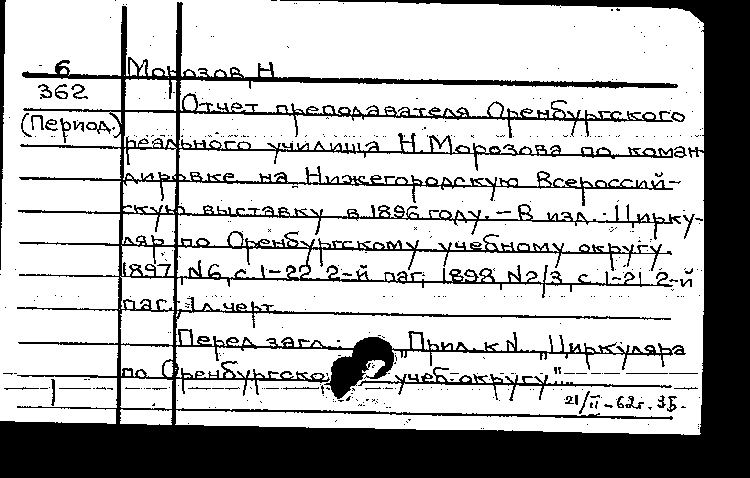 6
Морозов, Н
362
Отчет преподавателя Оренбургского
(Период.)
реального училища Н. Морозова по коман-
дировке на Нижегородскую Всероссий-
скую выставку в 1896 году. – В изд.: Цирку-
ляр по Оренбургскому учебному округу.
1897, №6, с. 1-22 2-й паг; 1898, №2/3, с. 1-21 2-й
паг.; 1 л. черт.
Перед загл.: „Прил. к № „Циркуляра
по Оренбургско учеб. округу"...
1
21/II – 62г. ЗБ.